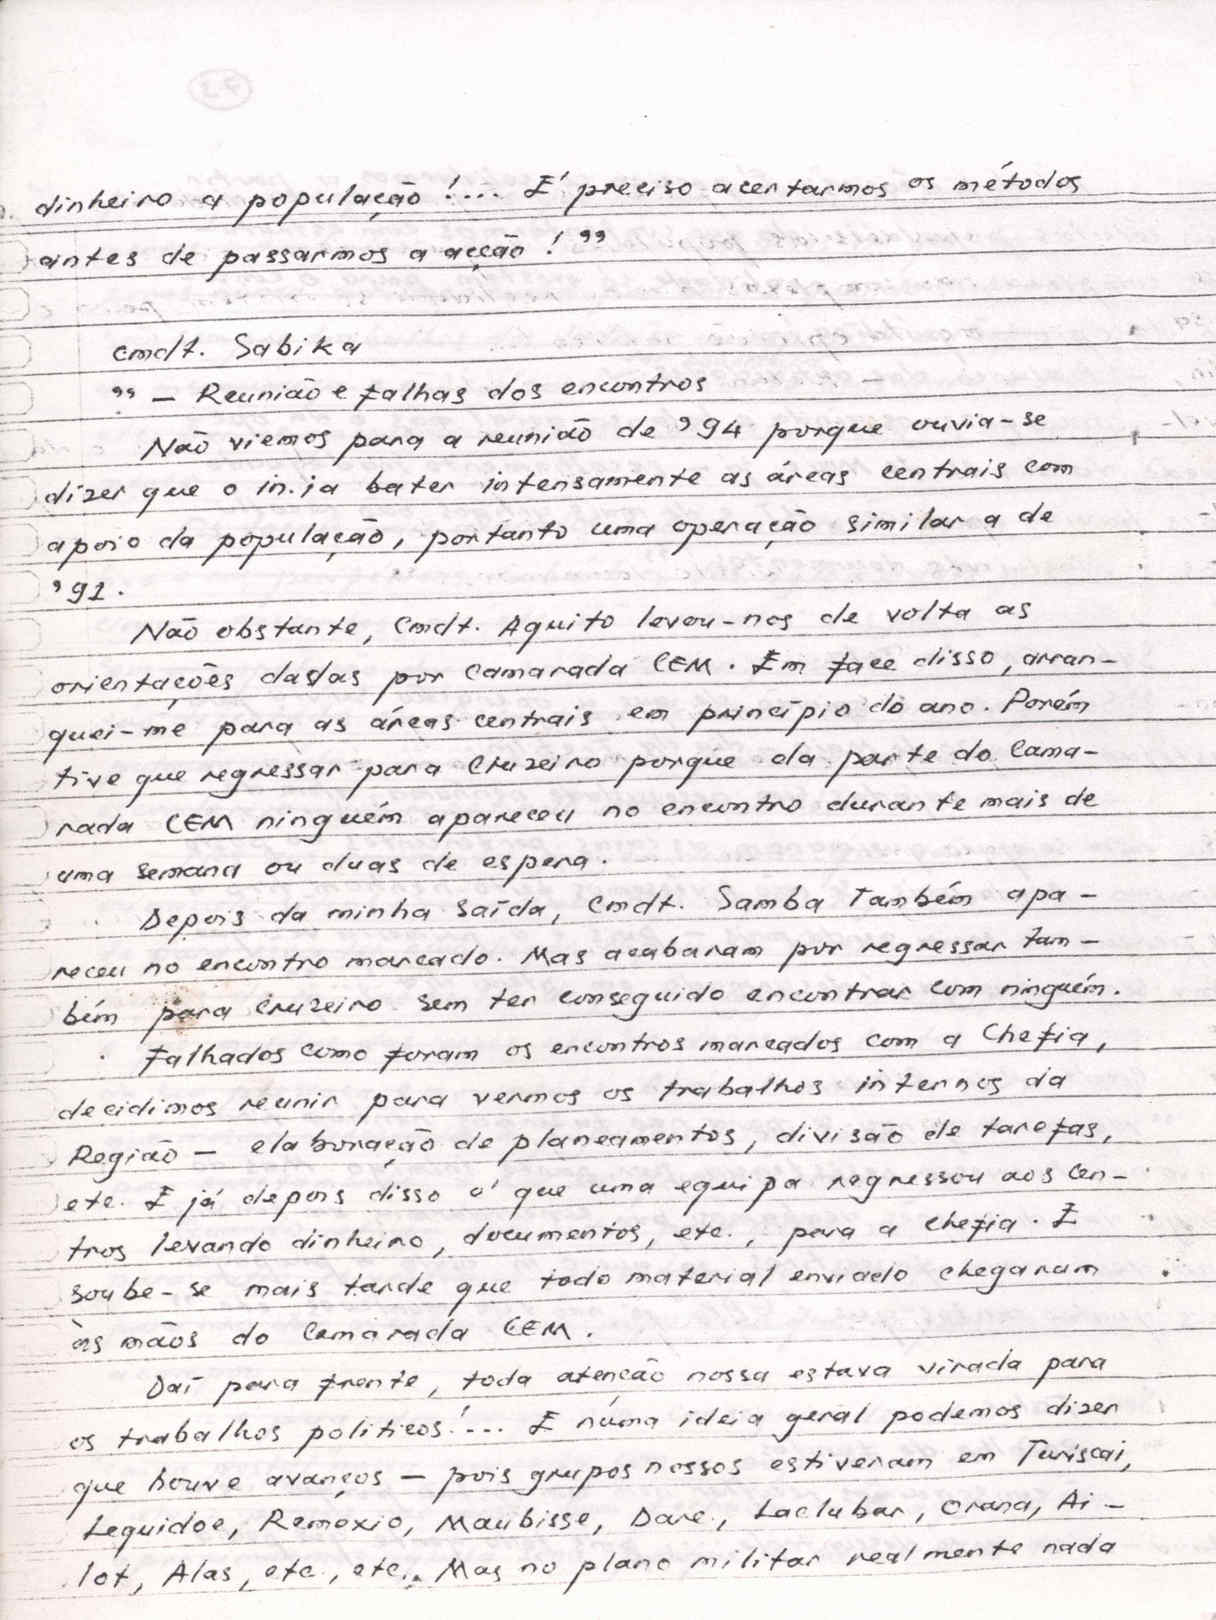 dinheiro a população!... É preciso acertarmos os métodos
antes de passarmos a acção!"
cmdt. Sabika
" — Reunião e falhas dos encontros
Não viemos para a reunião de '94 porque ouvia-se
dizer que o in. ia bater intensamente as áreas centrais com
apoio da população, portanto uma operação similar a de
'91.
Não obstante, Cmdt. Aquito levou-nos de volta as
orientações dadas por Camarada CEM. Em face disso, arran-
quei-me para as áreas centrais em princípio do ano. Porém
tive que regressar para Cruzeiro porque da parte do Cama-
rada CEM ninguém apareceu no encontro durante mais de
uma semana ou duas de espera.
Depois da minha saída, Cmdt. Samba também apa-
receu no encontro marcado. Mas acabaram por regressar tam-
bém para Cruzeiro sem ter conseguido encontrar com ninguém.
Falhados como foram os encontros marcados com a Chefia,
decidimos reunir para vermos os trabalhos internos da
Região — elaboração de planeamentos, divisão de tarefas,
etc. E já depois disso é que uma equipa regressou aos cen-
tros levando dinheiro, documentos, etc., para a chefia. E
soube-se mais tarde que todo material enviado chegaram
às mãos do Camarada CEM.
Daí para frente, toda atenção nossa estava virada para
os trabalhos políticos!... E numa ideia geral podemos dizer
que houve avanços — pois grupos nossos estiveram em Turiscai,
Lequidoe, Remexio, Maubisse, Dare, Laclubar, Orana, Ai-
lot, Alas, etc., etc.. Mas no plano militar realmente nada